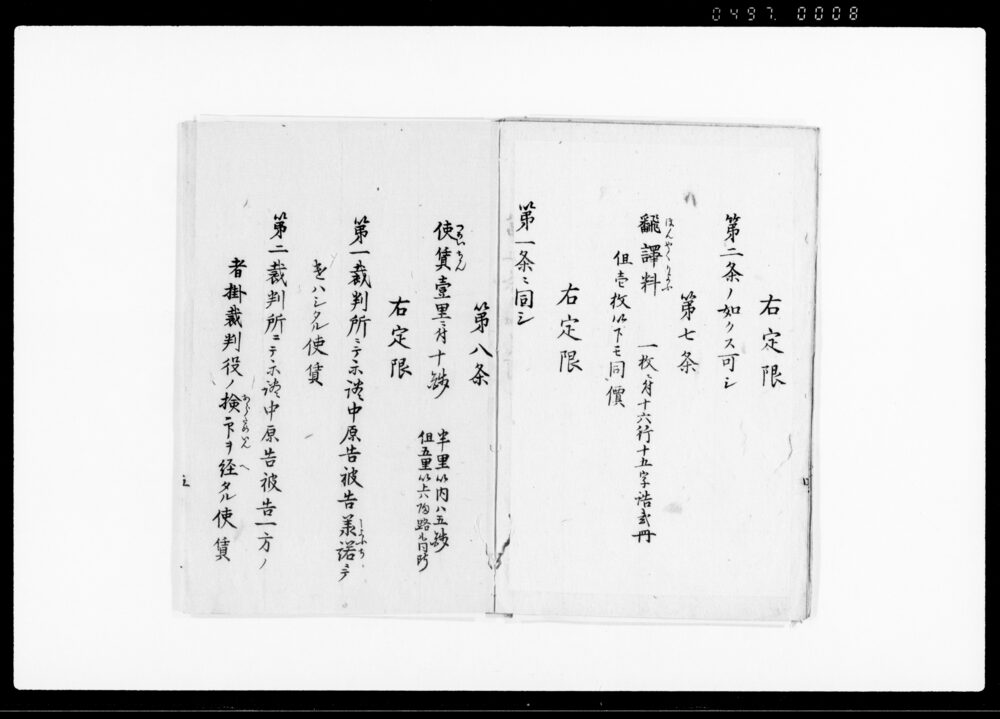 0497 0008
右定限
第二条ノ如クス可シ
第七条
飜譯料 一枚ニ付十六行十五字詰
ほんやくりょう
但壱枚以下モ同價
右定限
第一条ニ同シ
第八条
使賃壹里ニ付十錢
半里以内ハ五錢
但五里以上ハ
右定限
第一裁判所ニテ示談中原告被告義諾ニテ
遣ハシタル使賃
第二裁判所ニテ示談中原告被告一方ノ
者掛裁判役ノ検印ヲ経タル使賃